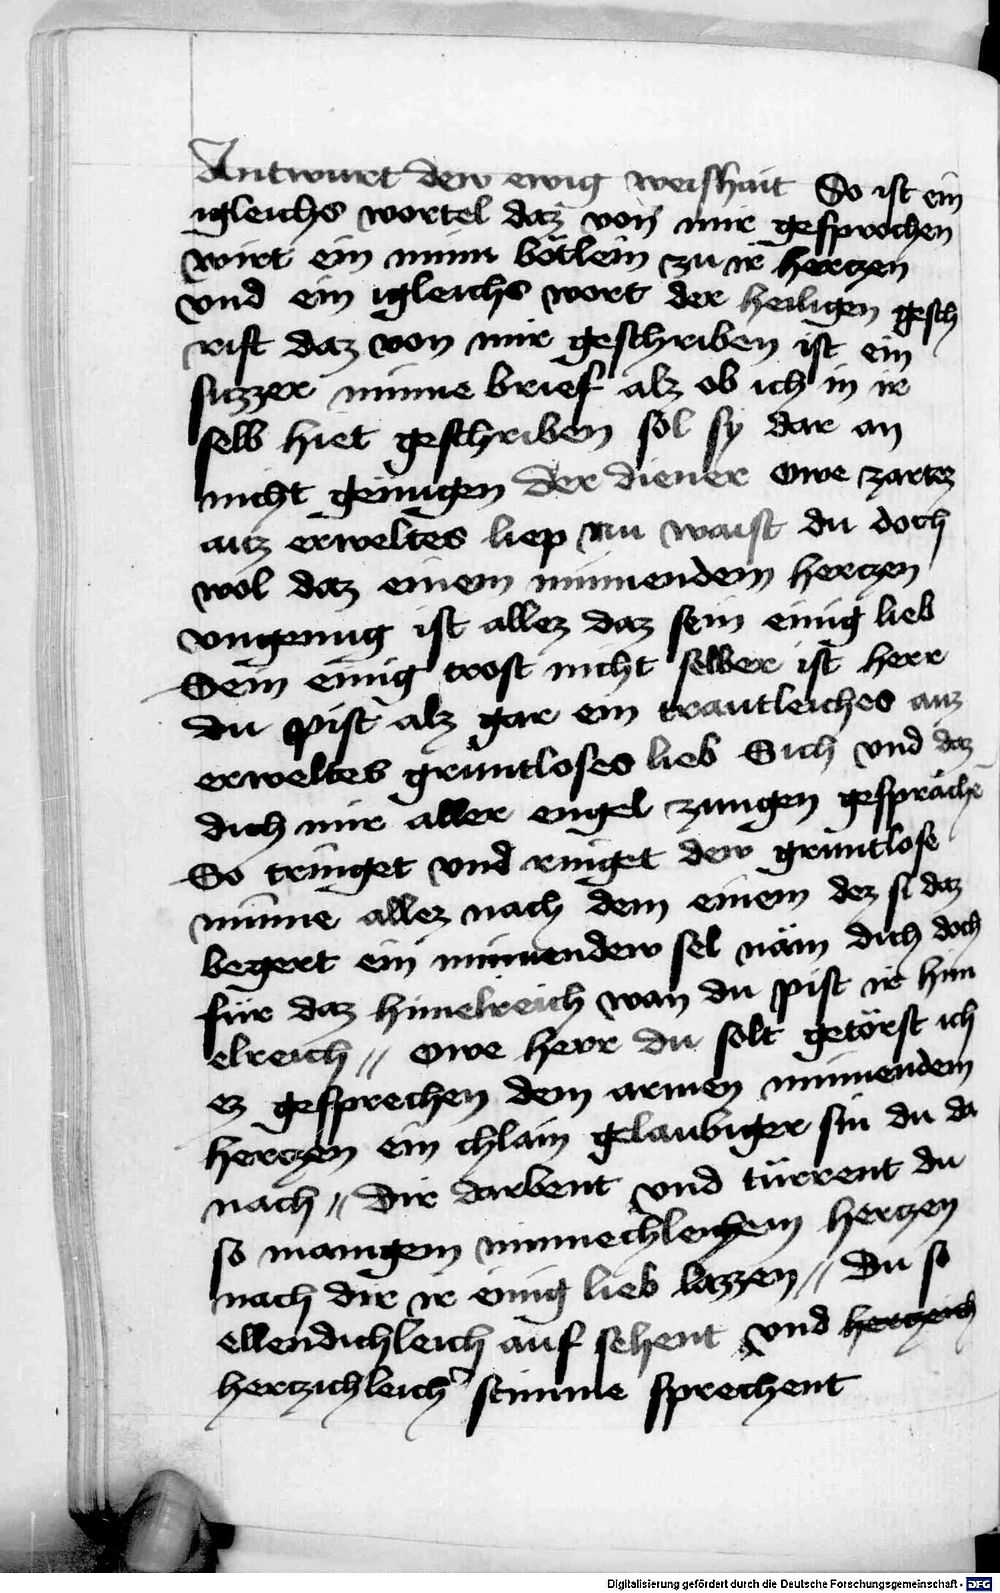 Antwurt dew ewig weishait So ist ein
igleichs wortel daz von mir gesprochen
wirt ein minn bötlein zu ir hertzen
vnd ein igleichs wort der heiligen gesch
rift daz von mir geschriben ist ein
suzzer minne brief alz ob ich in ir
selb hiet geschriben sol sy dar an
nicht genugen Der diener Owe zartez
auz erweltes liep nu waist du doch
wol daz einem minnendem hertzen
vngenug ist allez daz sein einig lieb
Sein einig trost nicht selber ist herr
du pist alz gar ein trautleiches auz
erweltes gruntloses lieb Sich vnd daz
dich mir aller engel zungen gespräche
So tringet vnd ringet dew gruntlose
minne allez nach dem einem dez si daz
begert ein minnendew sel näm dich doch
für daz himelreich wan du pist ir him
elreich // Owe herr du solt getörst ich
ez gesprechen dem armen minnendem
hertzen ein chlain gelaubiger sin du da
nach // Dir darbent vnd türrent du
so manigem minnechleichem hertzen
nach dir ir einig lieb lazzen // Du so
ellendichleich auf sehent vnd hertzeich
hertzichleich stimme sprechent
Digitalisierung gefördert durch die Deutsche Forschungsgemeinschaft - DFG